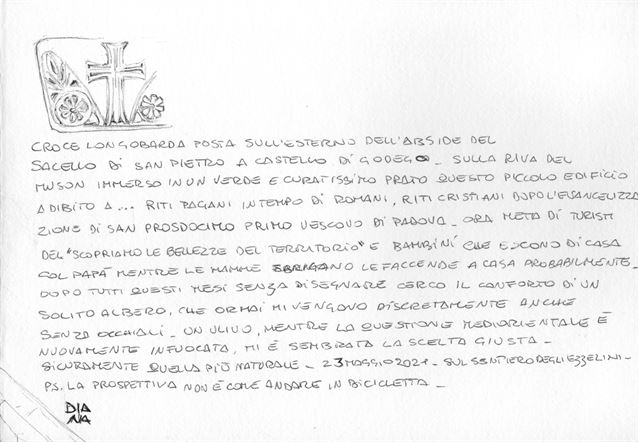 CROCE LONGOBARDA POSTA SULL'ESTERNO DELL'ABSIDE DEL
SACELLO DI SAN PIETRO A CASTELLO DI GODEGO _ SULLA RIVA DEL
MUSON IMMERSO IN UN VERDE E CURATISSIMO PRATO QUESTO PICCOLO EDIFICIO
ADIBITO A ... RITI PAGANI IN TEMPO DI ROMANI, RITI CRISTIANI DOPO L'EVANGELIZZA
ZIONE DI SAN PROSDOCIMO PRIMO VESCOVO DI PADOVA _ ORA META DI TURISTI
DEL "SCOPRIAMO LE BELLEZZE DEL TERRITORIO" E BAMBINI CHE ESCONO DI CASA
COL PAPÀ MENTRE LE MAMME SBRIGANO LE FACCENDE A CASA PROBABILMENTE _
DOPO TUTTI QUESTI MESI SENZA DISEGNARE CERCO IL CONFORTO DI UN
SOLITO ALBERO, CHE ORMAI MI VENGONO DISCRETAMENTE ANCHE
SENZA OCCHIALI _ UN ULIVO, MENTRE LA QUESTIONE MEDIORIENTALE È
NUOVAMENTE INFUOCATA, MI È SEMBRATA LA SCELTA GIUSTA _
SICURAMENTE QUELLA PIÙ NATURALE _ 23 MAGGIO 2021 _ SUL SENTIERO DEGLI EZZELINI _
P.S. LA PROSPETTIVA NON È COME ANDARE IN BICICLETTA _
DIA
NA